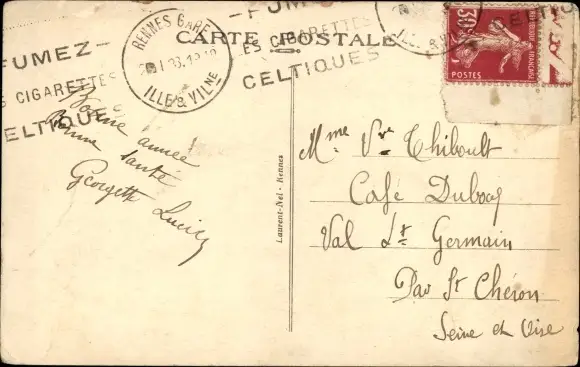 FUMEZ-
S CIGARETTES
CELTIQUE
RENNES GARE
ILLE & VILNE
-FUM
LES CIGARETTES
CELTIQUES
CARTE POSTALE
ILL. & VIL
CELTIQU
30
POSTES
Bonne année
Bonne santé
Georgette Lucien
Laurent-Nel - Rennes
Mme Vve Thiboult
Café Dubocq
Val St Germain
Par St Chéron
Seine et Oise